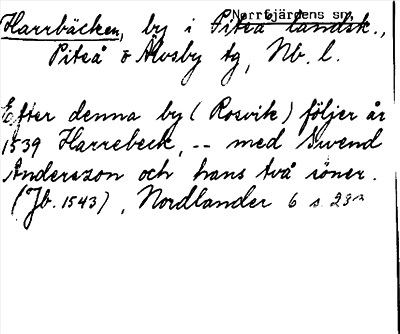 Norrfjärdens sn,
Harrbäcken, by i Piteå landsk.,
Piteå o Älvsby tg, Nb. l.
Efter denna by (Rosvik) följer år
1539 Harrebeck, -- med Swend
Anderszon och hans två söner.
(Jb. 1543), Nordlander 6 s. 23